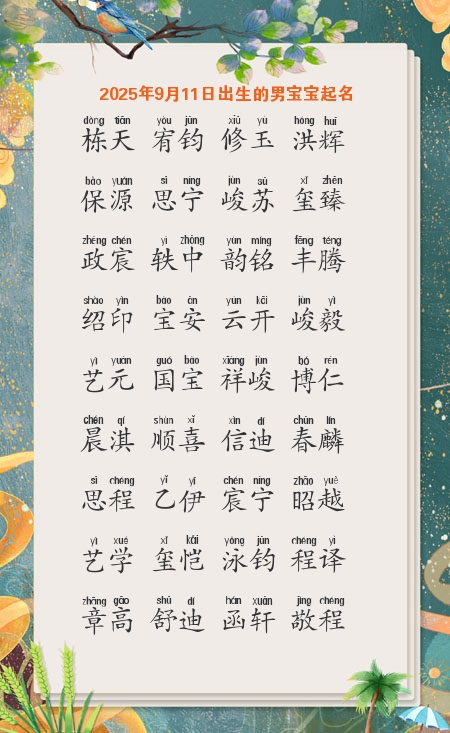 2025年9月11日出生的男宝宝起名
dòng tiān yòu jūn xiū yù hóng huī
栋天 宥钧 修玉 洪辉
bǎo yuán sī níng jùn sū xǐ zhēn
保源 思宁 峻苏 玺臻
zhèng chén yì zhōng yùn míng fēng téng
政宸 轶中 韵铭 丰腾
shào yìn bǎo ān yún kāi jùn yì
绍印 宝安 云开 峻毅
yì yuán guó bǎo xiáng jùn bó rén
艺元 国宝 祥峻 博仁
chén qí shùn xǐ xìn dí chūn lín
晨淇 顺喜 信迪 春麟
sī chéng yǐ yī chén níng zhāo yuè
思程 乙伊 宸宁 昭越
yì xué xǐ kǎi yǒng jūn chéng yì
艺学 玺恺 泳钧 程译
zhāng gāo shū dí hán xuān jìng chéng
章高 舒迪 函轩 敬程